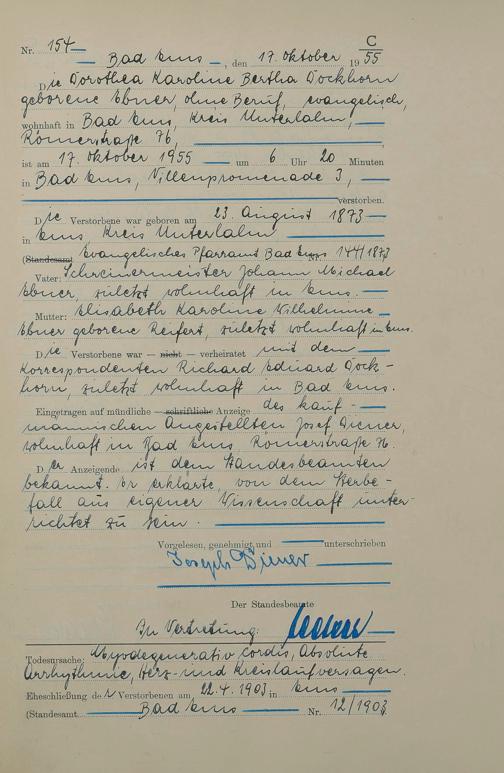 C
Nr. 154
Bad Ems, den 17. Oktober 1955
Die Dorothea Karoline Bertha Dockhorn
geborene Ebner, ohne Beruf, evangelisch,
wohnhaft in Bad Ems, Kreis Unterlahn,
Römerstraße 76,
ist am 17. Oktober 1955 um 6 Uhr 20 Minuten
in Bad Ems, Villenpromenade 3,
verstorben.
Die Verstorbene war geboren am 23. August 1873
in Ems Kreis Unterlahn
(Standesamt Evangelisches Pfarramt Bad Ems 144/1873
Vater: Schreinermeister Johann Michael
Ebner, zuletzt wohnhaft in Ems.
Mutter: Elisabeth Karoline Wilhelmine
Ebner geborene Reifert, zuletzt wohnhaft in Ems.
Die Verstorbene war — nicht — verheiratet mit dem
Korrespondenten Richard Eduard Dock-
horn, zuletzt wohnhaft in Bad Ems.
Eingetragen auf mündliche — schriftliche — Anzeige des kauf-
männischen Angestellten Josef Diener,
wohnhaft in Bad Ems, Römerstraße 76.
Der Anzeigende ist dem Standesbeamten
bekannt. Er erklärte, von dem Sterbe-
fall aus eigener Wissenschaft unter-
richtet zu sein.
Vorgelesen, genehmigt und unterschrieben
Joseph Diener
Der Standesbeamte
In Vertretung:
Todesursache: Myodegenerativ cordis, Absolute
Arrhythmie, Herz- und Kreislaufversagen.
Eheschließung der Verstorbenen am 22.4.1903 in Ems
(Standesamt Bad Ems Nr. 12/1903